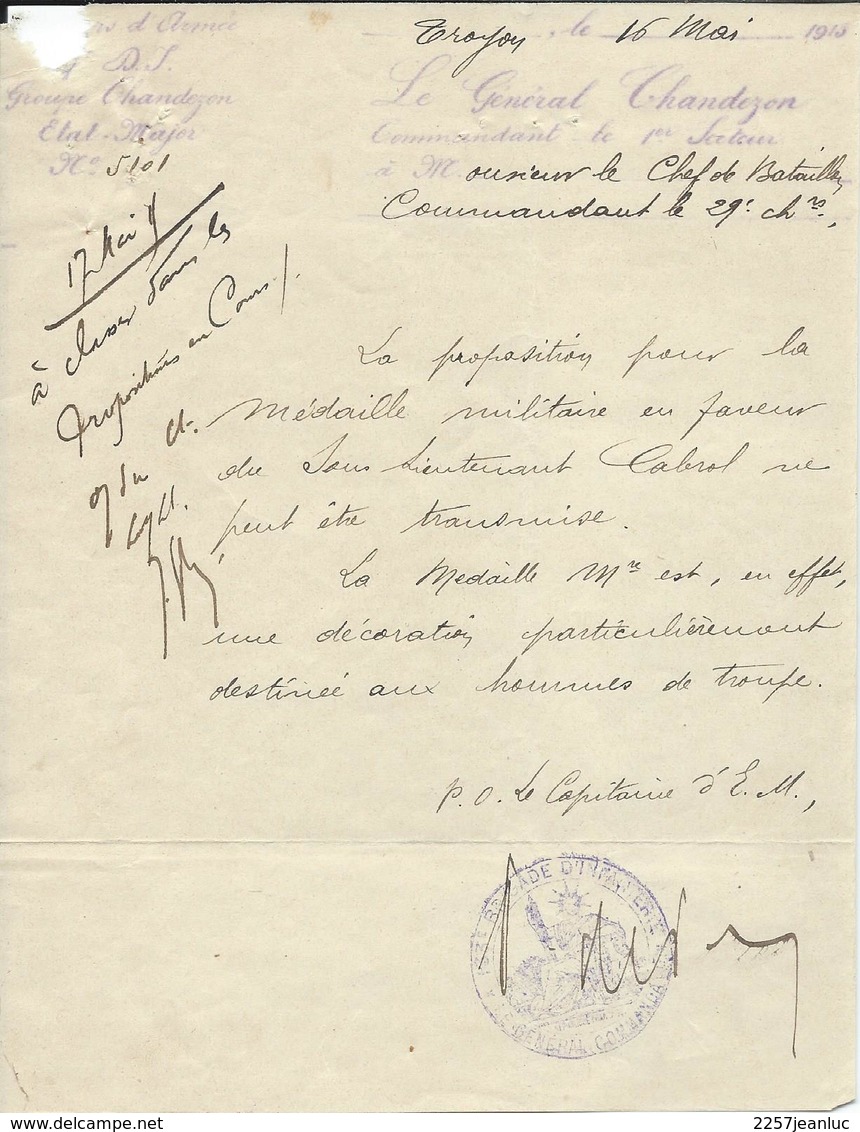 d'Armée
D. I.
Groupe Chandezon
Etat-Major
No 5101
Troyon, le 16 Mai 1915
Le Général Chandezon
Commandant le 1er Secteur
à Monsieur le Chef de Bataillon
Commandant le 29e chrs,
17 Mai
à classer dans les
propositions en Cours /.
du
La proposition pour la
Médaille militaire en faveur
du Sous Lieutenant Cabrol ne
peut être transmise.
La Médaille Mre est, en effet,
une décoration particulièrement
destinée aux hommes de troupe.
P. O. Le Capitaine d'E. M.,
BRIGADE D'INFANTERIE
LE GÉNÉRAL COMMANDANT
2257jeanluc